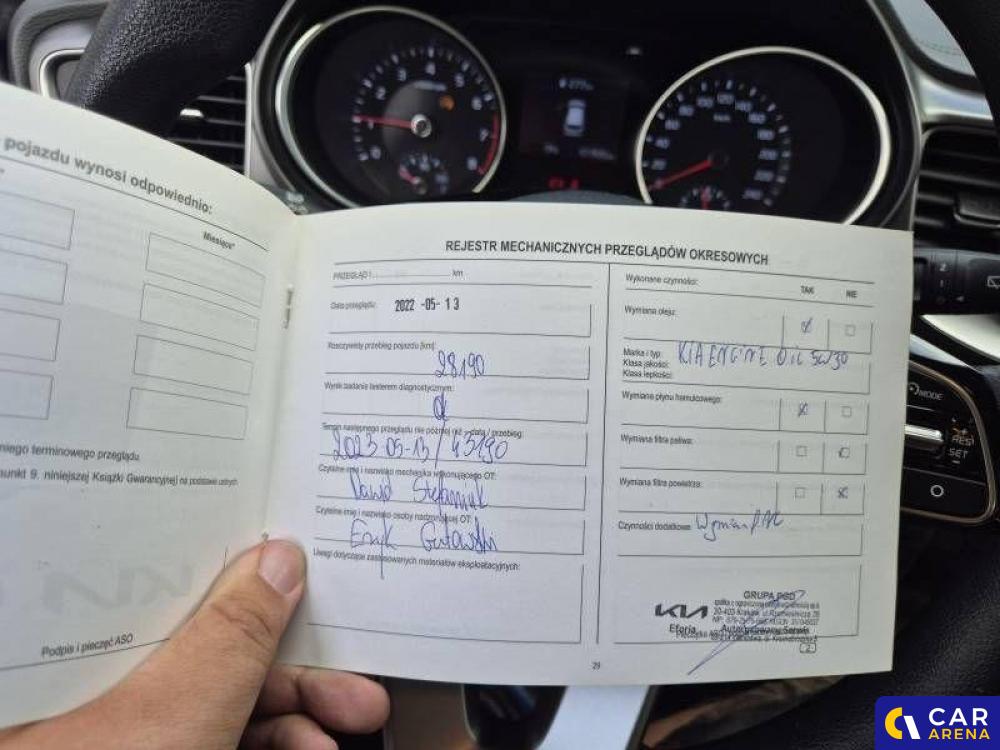 pojazdu wynosi odpowiednio:
Miesiące*
niego terminowego przeglądu
punkt 9. niniejszej Książki Gwarancyjnej) na podstawie ustnych
KIA
Podpis i pieczęć ASO
REJESTR MECHANICZNYCH PRZEGLĄDÓW OKRESOWYCH
PRZEGLĄD I km
Data przeglądu: 2022 -05- 13
Rzeczywisty przebieg pojazdu [km]:
28190
Wynik badania testerem diagnostycznym:
ok
Termin następnego przeglądu nie później niż - data / przebieg:
2023-05-13/43190
Czytelne imię i nazwisko mechanika wykonującego OT:
Dawid Stefaniuk
Czytelne imię i nazwisko osoby nadzorującej OT:
Eryk Gutowski
Uwagi dotyczące zastosowanych materiałów eksploatacyjnych:
Wykonane czynności:
TAK NIE
Wymiana oleju:
Marka i typ: KIA ENGINE OIL 5W30
Klasa jakości:
Klasa lepkości:
Wymiana płynu hamulcowego:
Wymiana filtra paliwa:
Wymiana filtra powietrza:
Czynności dodatkowe:
GRUPA PGD
KIA
Eforia Autoryzowany Serwis
2
29
MODE
RES
SET
CAR
ARENA